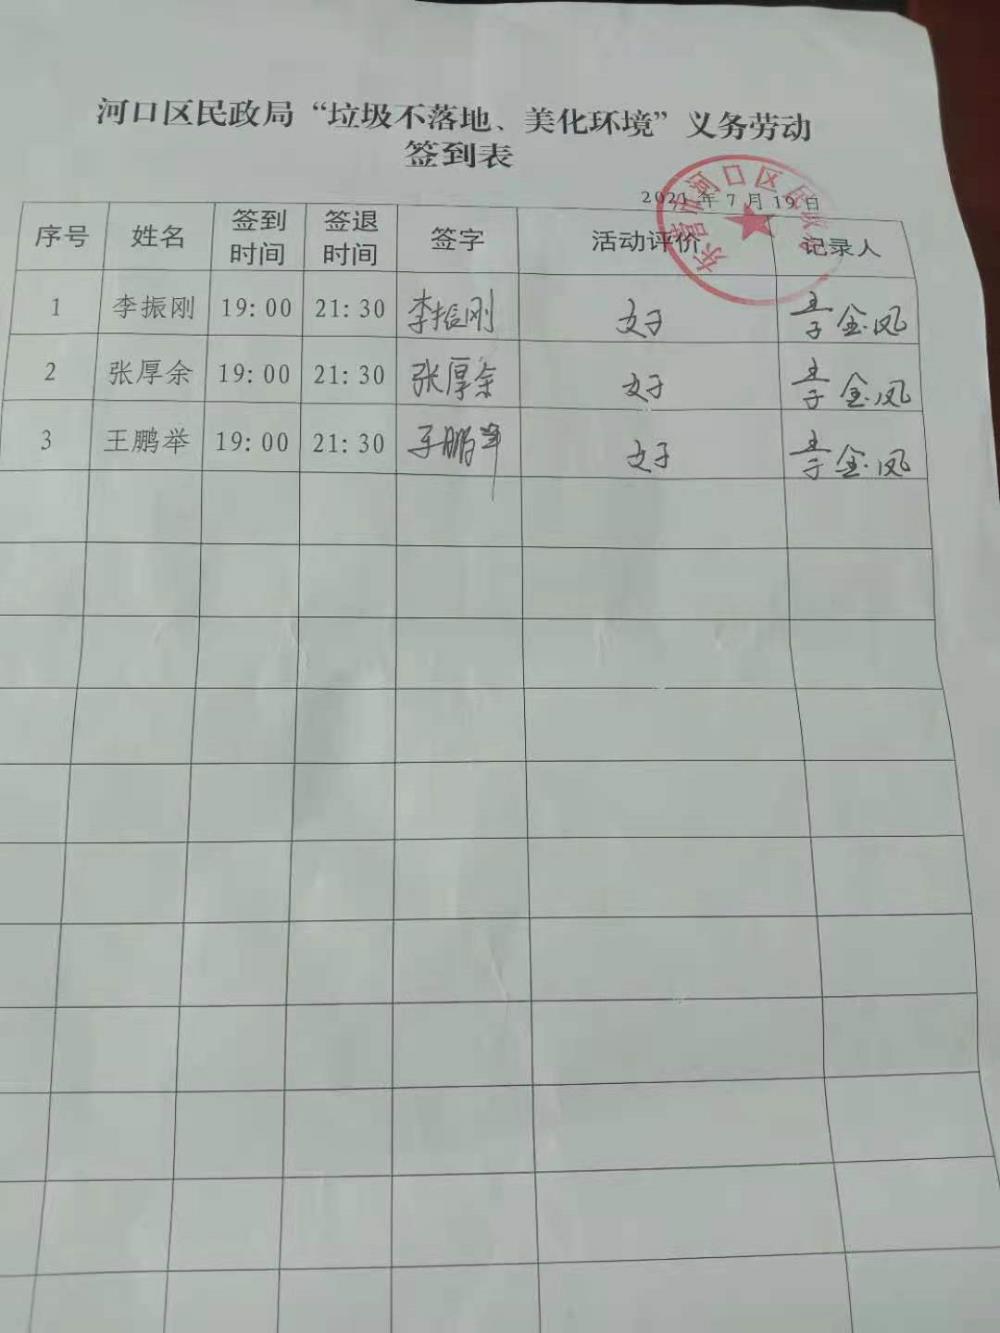 河口区民政局“垃圾不落地、美化环境”义务劳动
签到表
2021年7月19日
东营市河口区民政局
序号 姓名 签到时间 签退时间 签字 活动评价 记录人
1 李振刚 19:00 21:30 李振刚 好 金凤
2 张厚余 19:00 21:30 张厚余 好 金凤
3 王鹏举 19:00 21:30 王鹏举 好 金凤